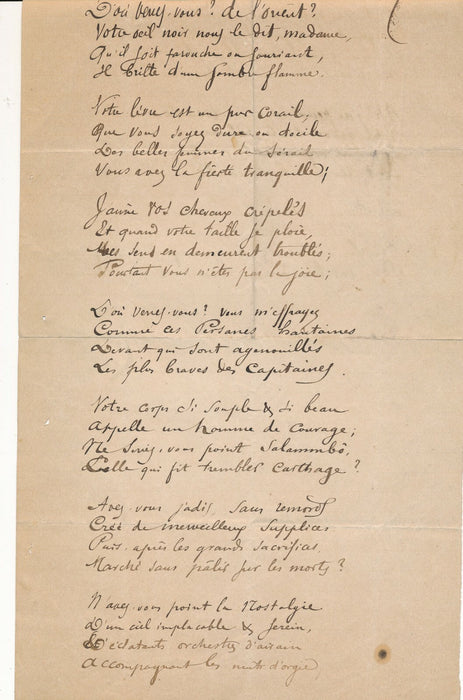 D'où venez-vous? de l'orient?
Votre oeil noir nous le dit, madame,
Qu'il soit farouche ou souriant,
Il brille d'une sombre flamme.

Votre lèvre est un pur corail,
Que vous soyez dure ou docile
Des belles femmes du Sérail
Vous avez la fierté tranquille;

J'aime vos cheveux crépelés
Et quand votre taille se ploie,
Mes sens en demeurent troublés;
Pourtant vous n'êtes pas la joie;

D'où venez-vous? vous m'effrayez
Comme ces Persanes hautaines
Devant qui sont agenouillés
Les plus braves des Capitaines.

Votre corps si souple & si beau
Appelle un homme de courage;
Ne seriez-vous point Salammbô,
Celle qui fit trembler Carthage?

Avez-vous jadis, sans remords
Créé de merveilleux supplices
Puis, après les grands sacrifices,
Marché sans pâlir sur les morts?

N'avez-vous point la nostalgie
D'un ciel implacable & serein,
D'éclatants orchestres d'airain
Accompagnant les nuits d'orgie,